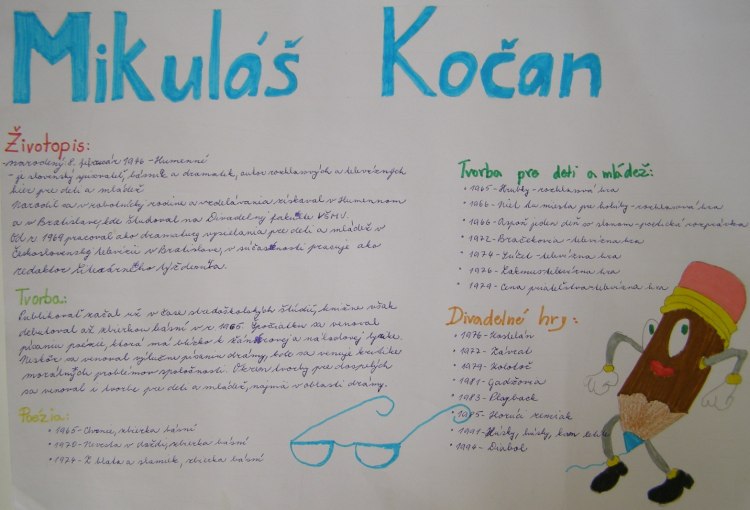 Mikuláš Kočan
Životopis:
- narodený: 8. február 1946 - Humenné
- je slovenský spisovateľ, básnik a dramatik, autor rozhlasových a televíznych
hier pre deti a mládež
Narodil sa v robotníckej rodine a vzdelávanie získaval v Humennom
a v Bratislave, kde študoval na Divadelnej fakulte VŠMU.
Od r. 1969 pracoval ako dramaturg vysielania pre deti a mládež v
Československej televízii v Bratislave, v súčasnosti pracuje ako
redaktor Literárneho týždenníka.
Tvorba:
Publikovať začal už v čase stredoškolských štúdií, knižne však
debutoval až zbierkou básní v r. 1965. Spočiatku sa venoval
písaniu poézie, ktorá má blízko k žánrovej a národnej lyrike.
Neskôr sa venoval výlučne písaniu drámy, kde sa venuje kritike
morálnych problémov spoločnosti. Okrem tvorby pre dospelých
sa venoval i tvorbe pre deti a mládež, najmä v oblasti drámy.
Poézia:
• 1965 - Chvenie, zbierka básní
• 1970 - Nevesta v daždi, zbierka básní
• 1974 - Z blata a slamiek, zbierka básní
Tvorba pre deti a mládež:
• 1965 - Hrušky - rozhlasová hra
• 1966 - Niel do mesta pre holuby - rozhlasová hra
• 1966 - Aspoň jeden deň so slonom - poetická rozprávka
• 1972 - Bračekovia - televízna hra
• 1974 - Ľúbež - televízna hra
• 1976 - Lakmus - televízna hra
• 1979 - Cena priateľstva - televízna hra
Divadelné hry:
• 1976 - Kastelán
• 1977 - Závesť
• 1979 - Kolotoč
• 1981 - Gadžovka
• 1983 - Playback
• 1985 - Horúci zemiak
• 1991 - Húsky, húsky, kam letíte
• 1994 - Diabol